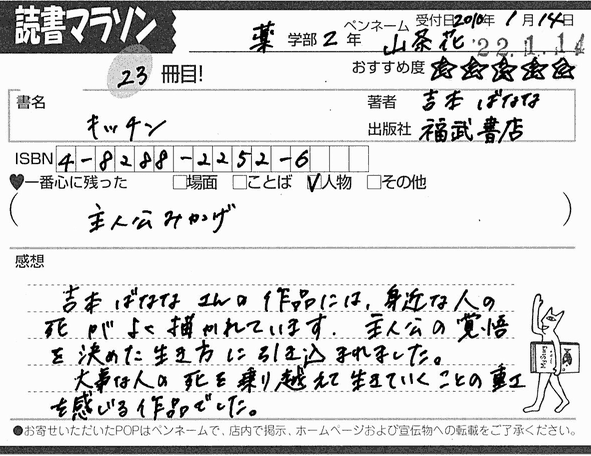 読書マラソン
薬 学部 2 年 ペンネーム 山茶花 受付日 2010年 1月 14日
22.1.14
23 冊目! おすすめ度 ☆☆☆☆☆
書名 キッチン 著者 吉本 ばなな
出版社 福武書店
ISBN 4-8288-2252-6
♥一番心に残った □場面 □ことば ☑人物 □その他
(主人公みかげ)
感想
吉本 ばなな さんの 作品には、身近な人の
死 が よく描かれています. 主人公の覚悟
を 決めた 生き方 に 引き込まれました。
大事な人の 死を乗り越えて生きていくことの重工
を感じる 作品でした。
Mystery
●お寄せいただいたPOPはペンネームで、店内で掲示、ホームページおよび宣伝物への転載をご了承ください。